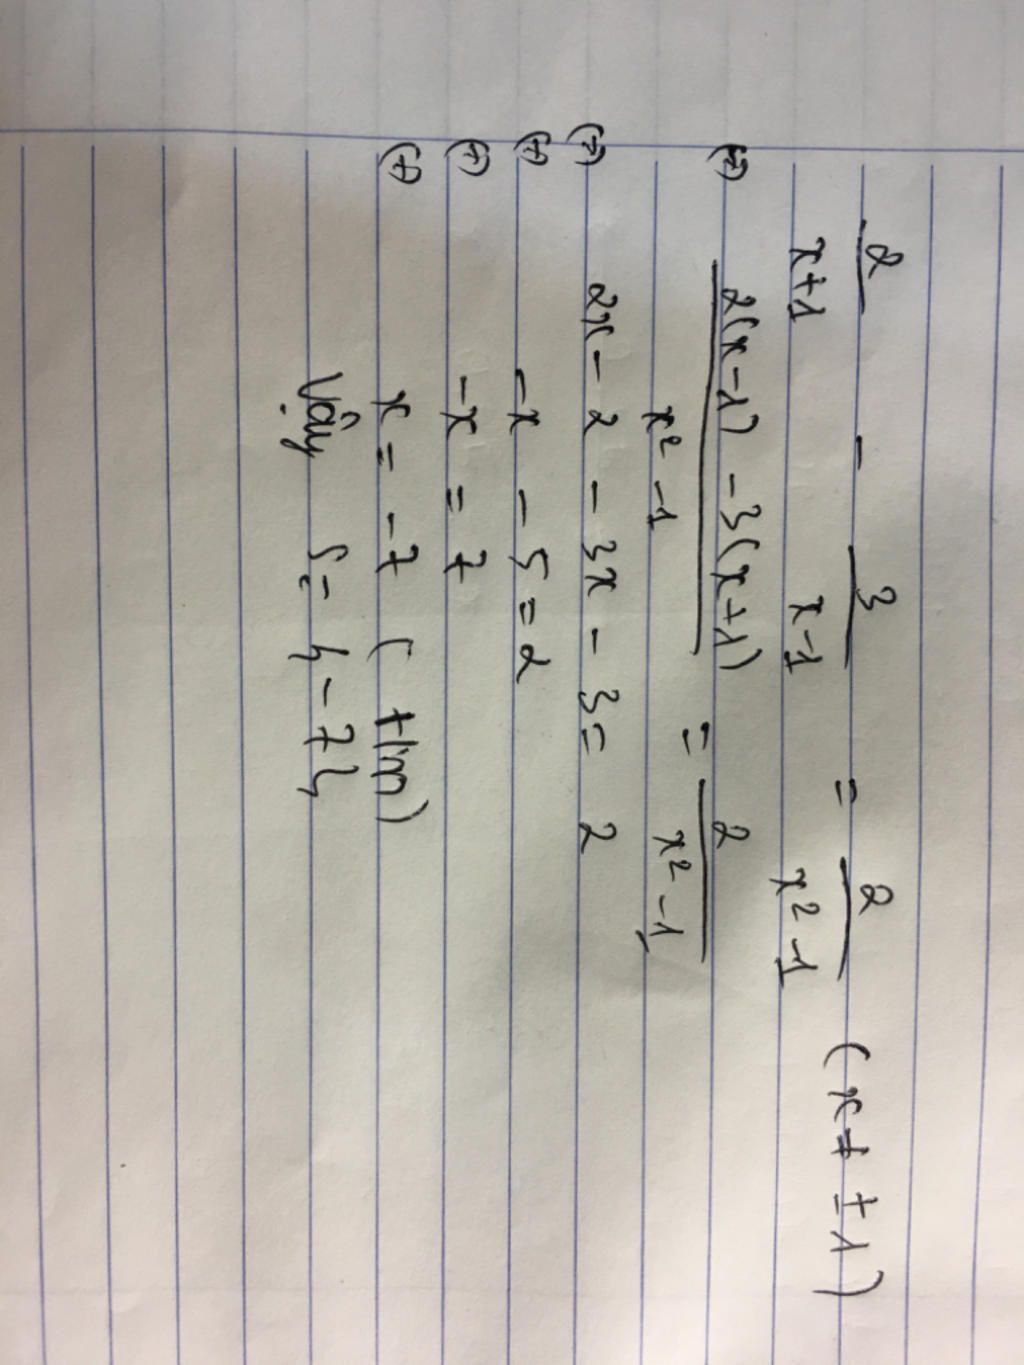 2/(x+1) - 3/(x-1) = 2/(x²-1) (x ≠ ±1)
⇔ (2(x-1) - 3(x+1))/(x²-1) = 2/(x²-1)
⇔ 2x - 2 - 3x - 3 = 2
⇔ -x - 5 = 2
⇔ -x = 7
⇔ x = -7 (t/m)
Vậy S = {-7}